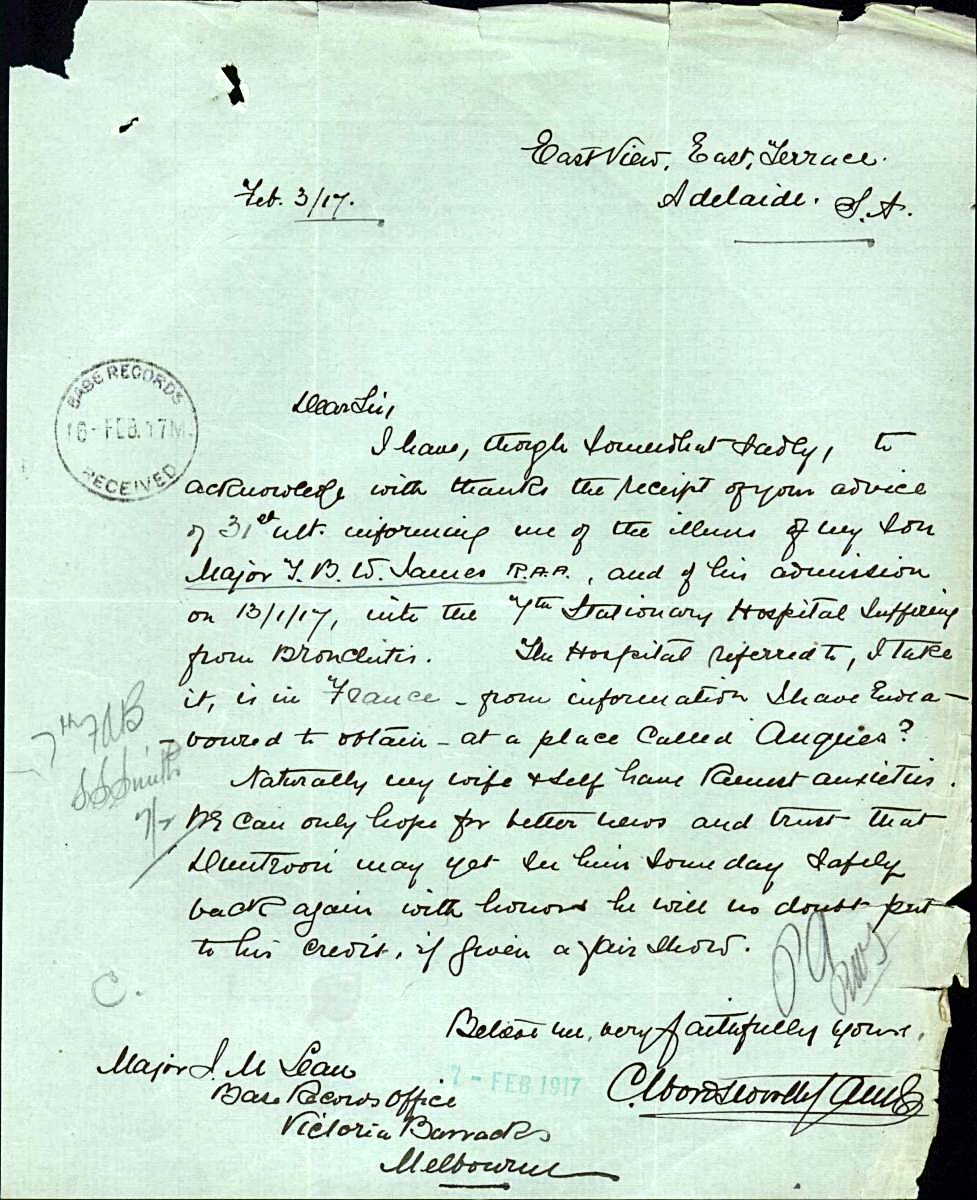 East View, East, Terrace.
Adelaide. S.A.
Feb. 3/17.
BASE RECORDS
16 - FEB. 17 M.
RECEIVED
Dear Sir,
I have, though somewhat sadly, to
acknowledge with thanks the receipt of your advice
of 31st ult. informing me of the illness of my son
Major T. B. W. James R.A.A., and of his admission
on 13/1/17, into the 7th Stationary Hospital suffering
from Bronchitis. The Hospital referred to, I take
it, is in France - from information I have Endea-
voured to obtain - at a place called Anques?
7th FAB
S S Smith
7/2
Naturally my wife & self have keenest anxieties.
We can only hope for better news and trust that
Duntroon may yet see him some day safely
back again with honors he will no doubt put
to his credit, if given a fair show.
C.
Believe me, very faithfully yours,
C. Wordsworth James
7 - FEB 1917
Major J. M Lean
Base Records Office
Victoria Barracks
Melbourne